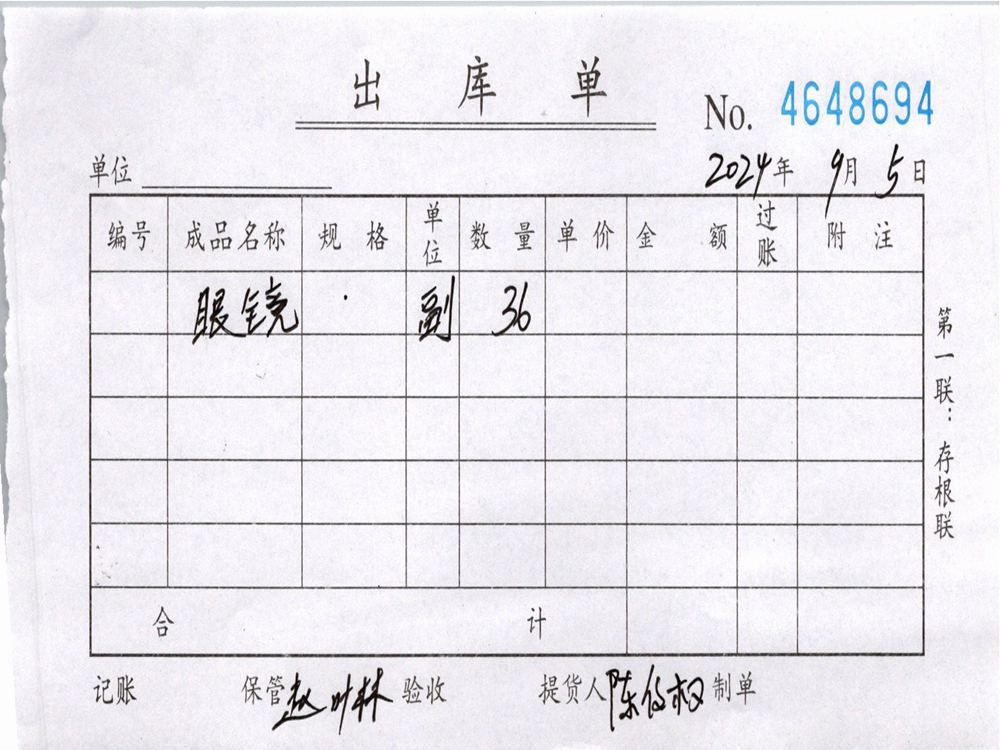 出库单
No. 4648694
单位 2024年9月5日
编号 成品名称 规格 单位 数量 单价 金额 过账 附注
眼镜 副 36
合计
记账 保管赵叶林 验收 提货人陈 权 制单
第一联：存根联